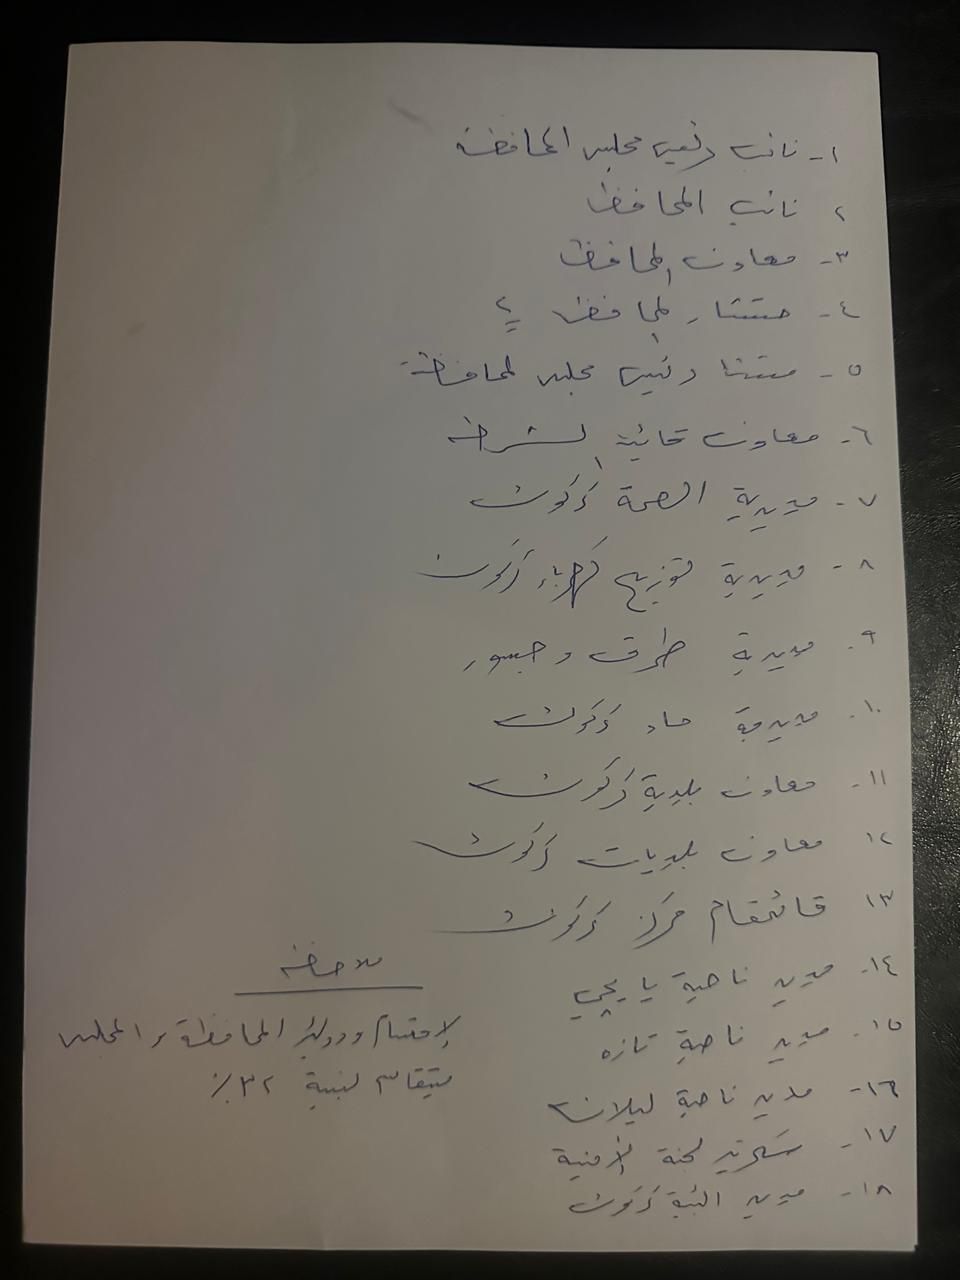 ١- نائب رئيس مجلس المحافظة
٢ نائب المحافظ
٣- معاون المحافظ
٤- مستشار المحافظ
٥- مستشار رئيس مجلس المحافظة
٦- معاون قائد الشرطة
٧- مديرية الصحة كركوك
٨- مديرية توزيع كهرباء كركوك
٩- مديرية طرق وجسور
١٠- مديرية ماء كركوك
١١- معاون بلدية كركوك
١٢ معاون بلديات كركوك
١٣ قائمقام مركز كركوك
١٤- مدير ناحية يايجي
١٥- مدير ناحية تازه
١٦- مدير ناحية ليلان
١٧- سكرتير لجنة الأمنية
١٨- مدير كركوك
ملاحظة
الأقسام ودوائر المحافظة والمجلس
يتقاسم نسبة ٣٢٪